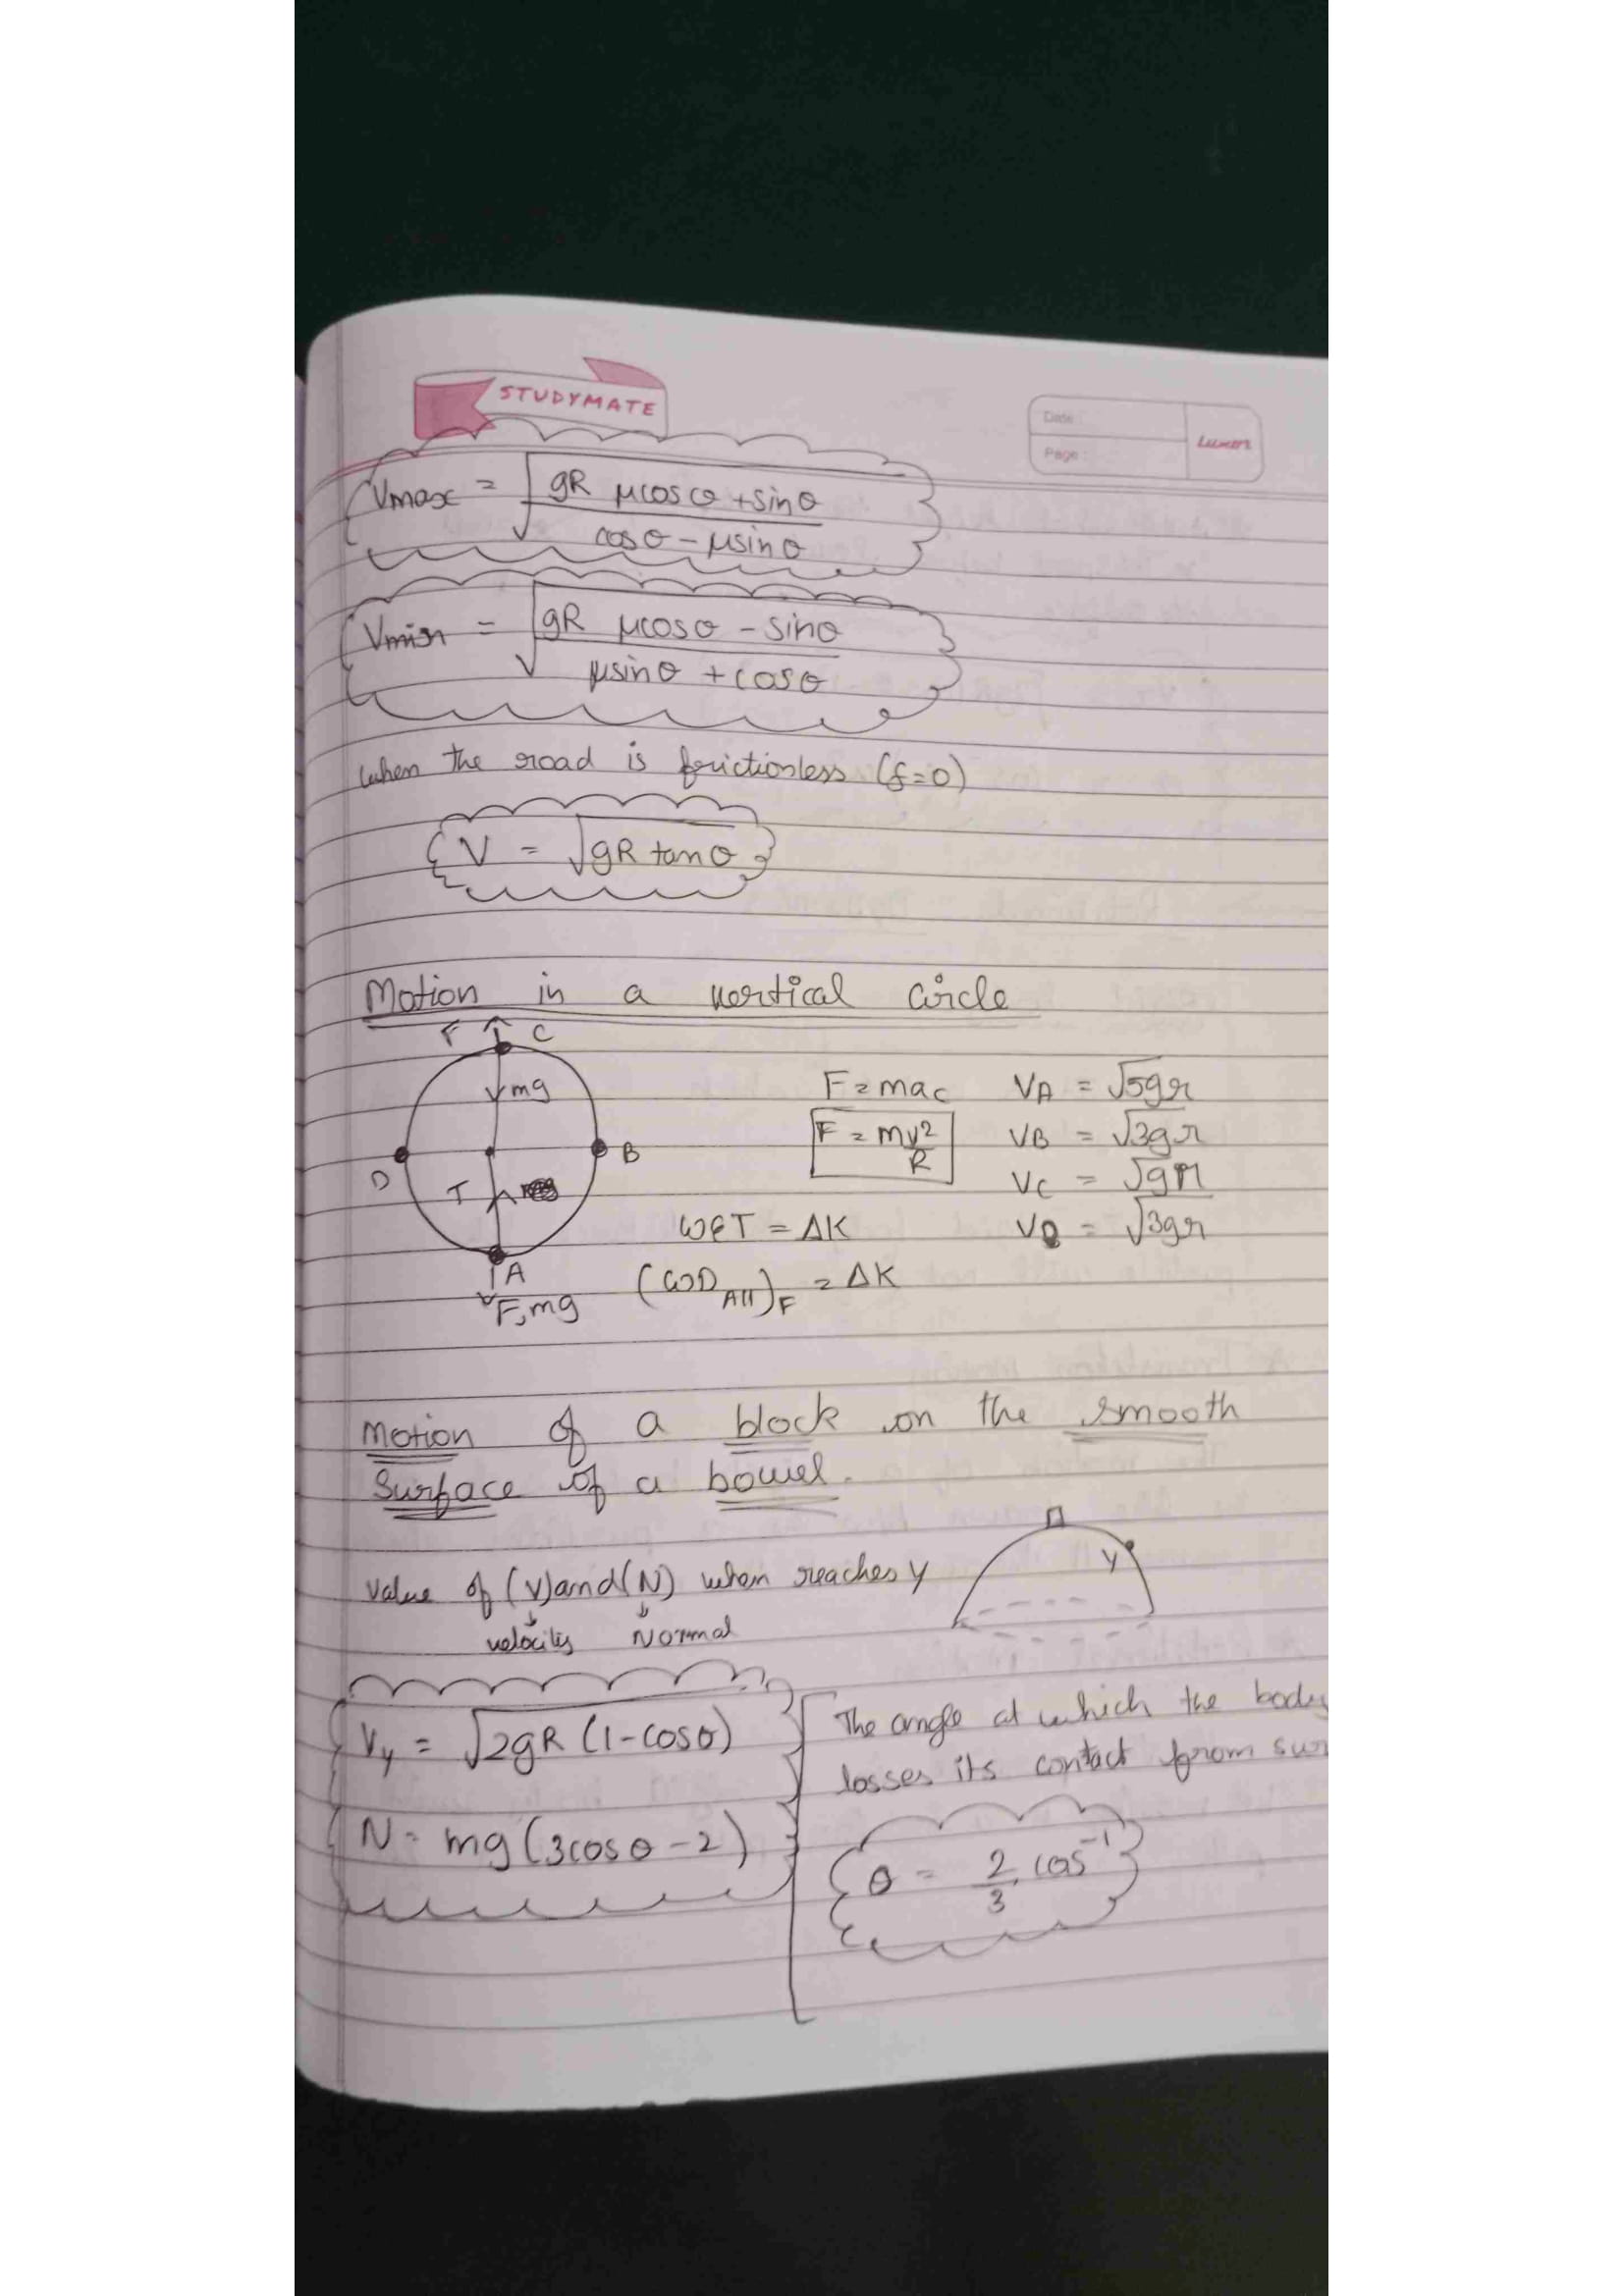 STUDYMATE
Date :
Page :
Luxor
Vmax = √(gR μcosθ + sinθ
cosθ - μsinθ
Vmin = √(gR μcosθ - sinθ
μsinθ + cosθ
when the road is frictionless (f=0)
V = √gR tanθ
Motion in a vertical circle
F C
mg
D B
T
A
F, mg
F = mac
F = mv²
R
VA = √5gr
VB = √3gr
VC = √gr
VD = √3gr
WET = ΔK
(WD All)F = ΔK
Motion of a block on the smooth
Surface of a bowel.
Value of (V) and (N) when reaches y
velocity Normal
y
Vy = √2gR (1-cosθ)
N = mg(3cosθ - 2)
The angle at which the body
losses its contact from sur
θ = 2 cos⁻¹
3